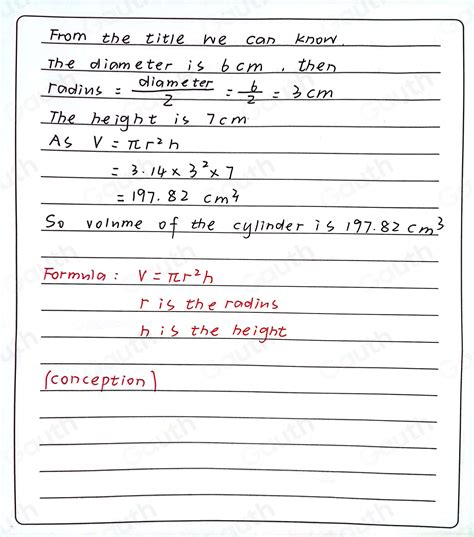 From the title we can know.
The diameter is 6cm, then
radius = diameter/2 = 6/2 = 3cm
The height is 7cm
As V = πr²h
= 3.14×3²×7
= 197.82 cm³
So volume of the cylinder is 197.82 cm³
Formula: V = πr²h
r is the radius
h is the height
(conception)